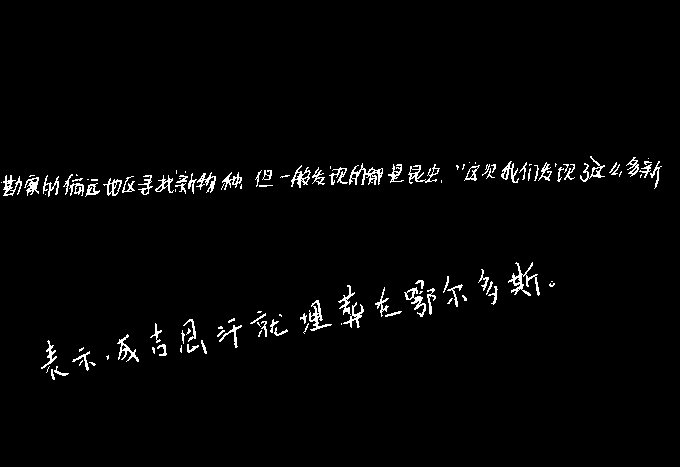 勘察的偏远地区寻找新物种,但一般发现的都是昆虫,“这次我们发现了这么多新
表示,成吉思汗就埋葬在鄂尔多斯。